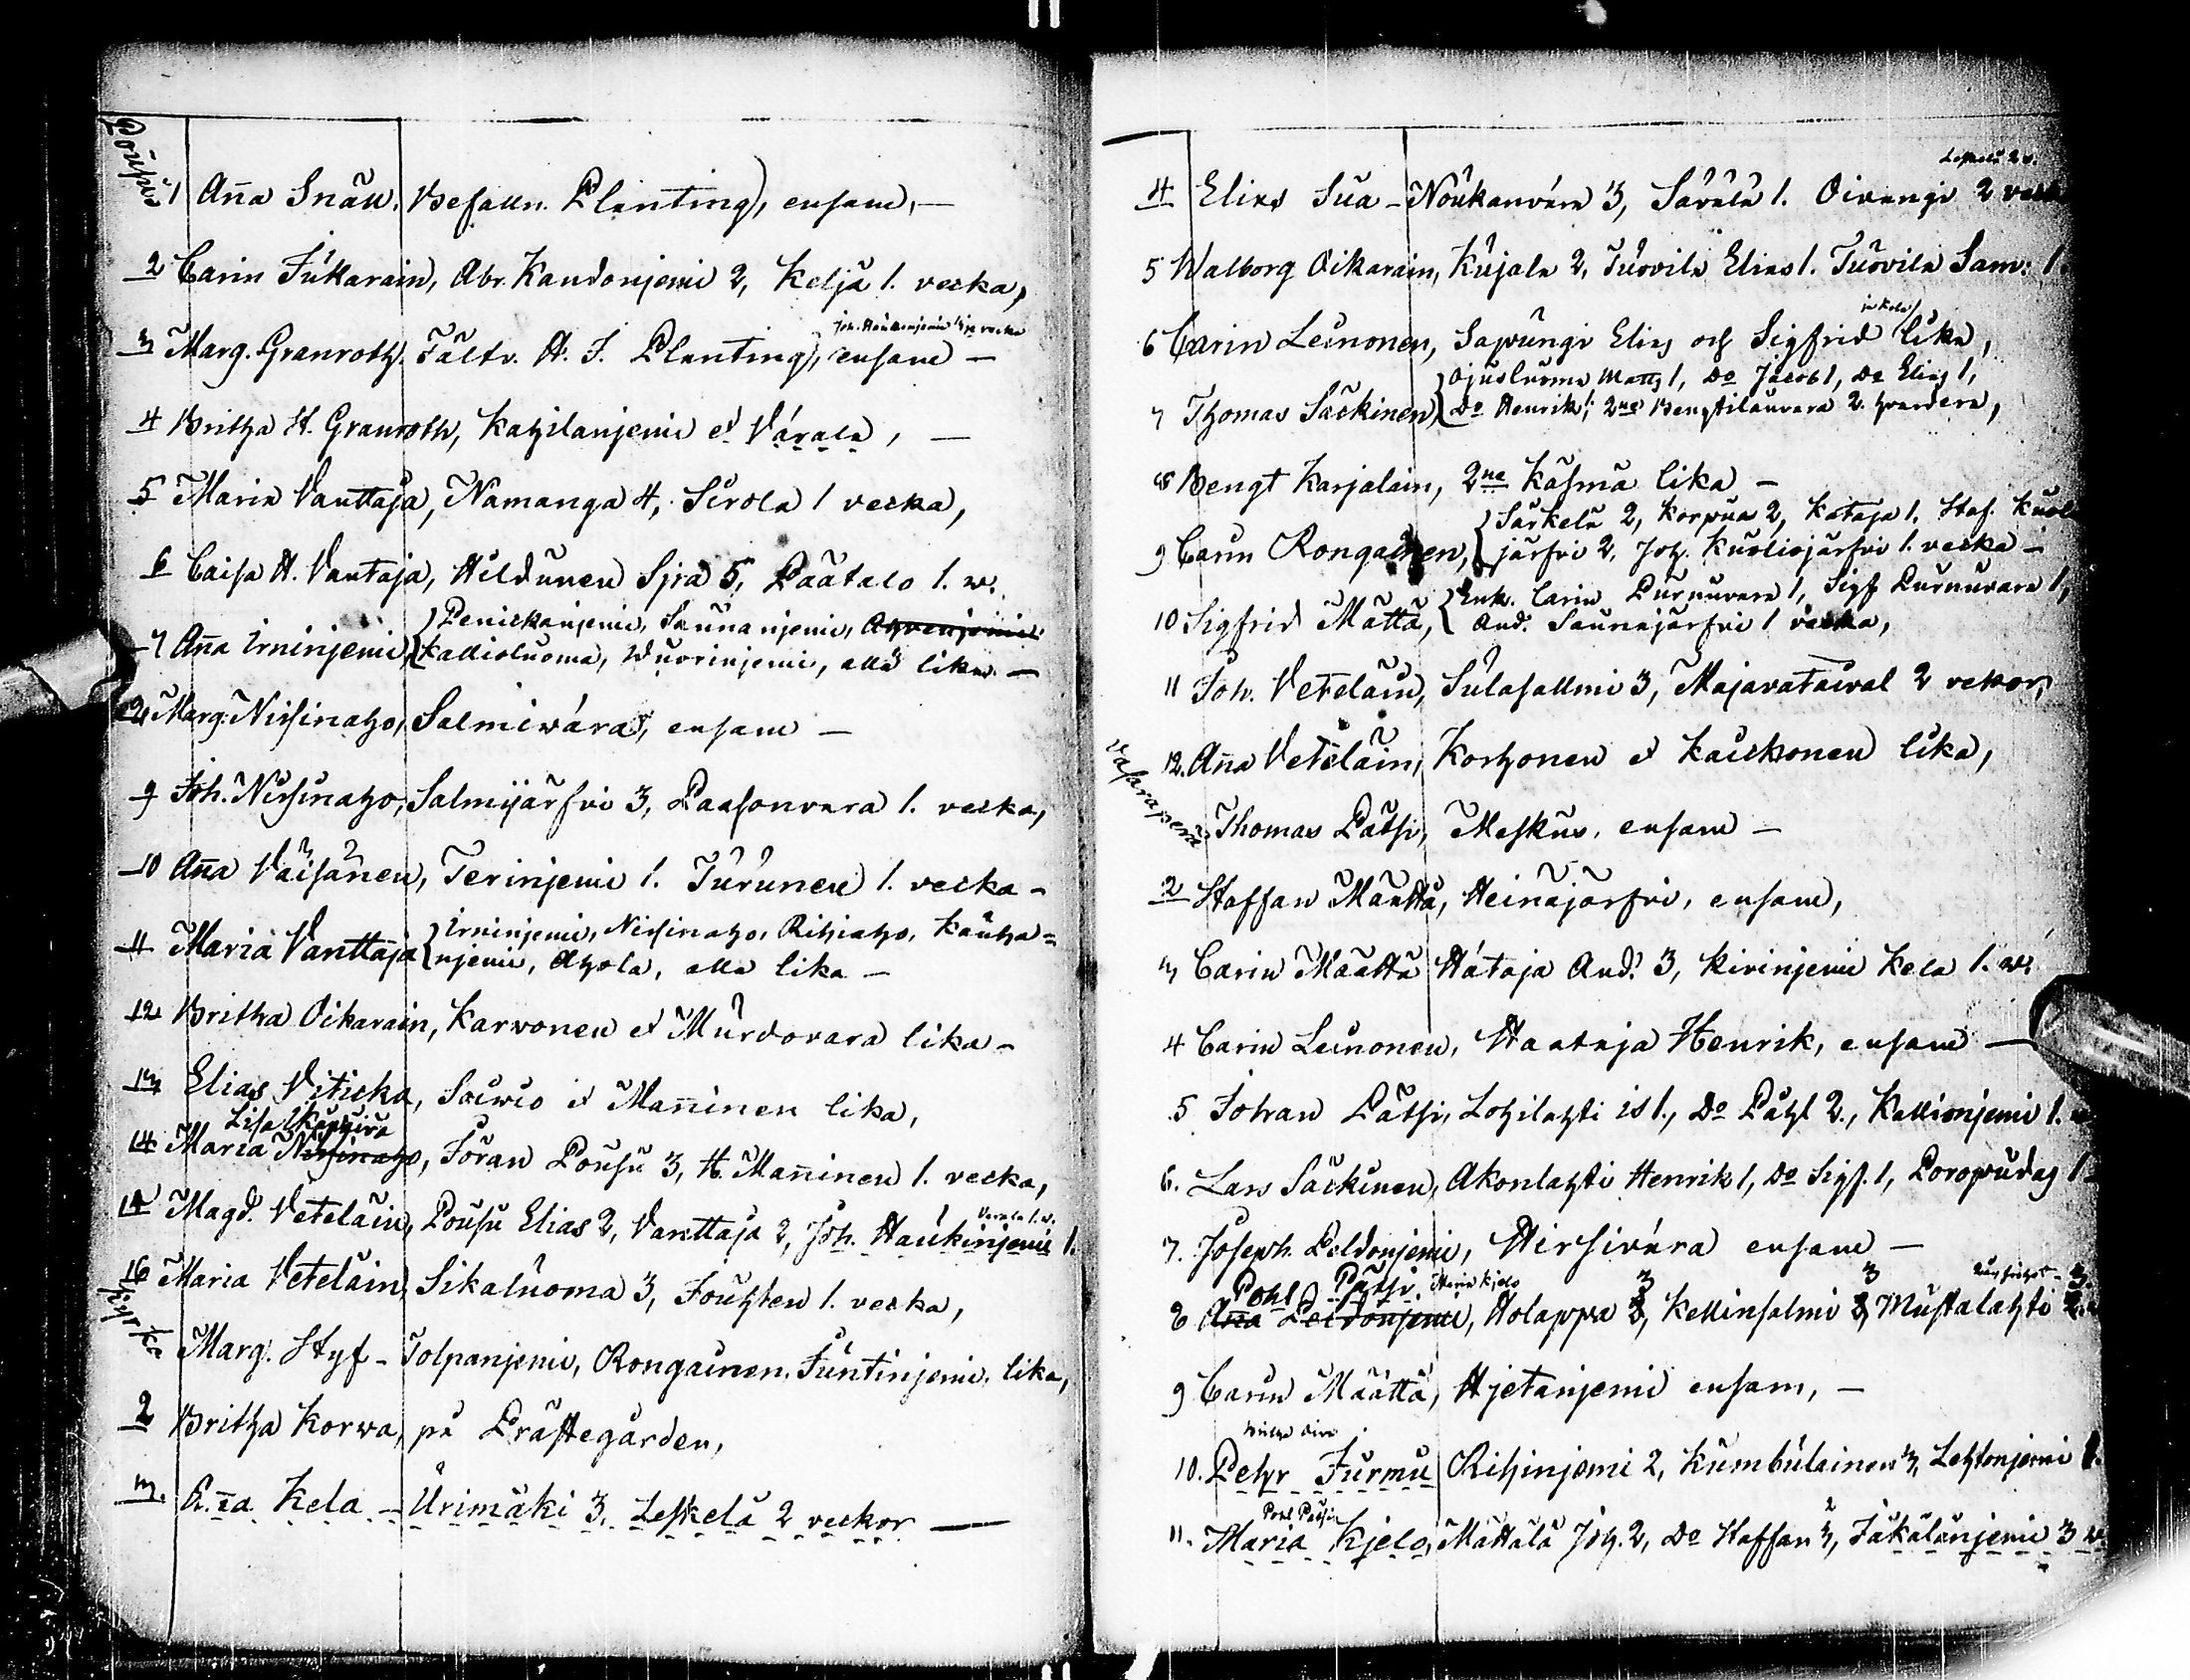 Pousu
1 Aña Snäll, Befalln. Planting, ensam, —
2 Carin Jukarain, Abr. Kandonjemi 2, Keljä 1. vecka,
Joh. Haukinjemi
3 Marg. Granroth, Fältv. H. J. Planting, ensam —
4 Britha H. Granroth, Kahilanjemi et Várala, —
5 Maria Vanttaja, Namanga 4, Sirola 1 vecka,
6 Caisa H. Vantaja, Hildunen Sjra 5, Päätalo 1. w.
Penickanjemi, Saunanjemi, Ahvenjemi
7 Aña Irninjemi, Kallioluoma, Wuorinjemi, alla lika —
Marg. Nissinaho, Salmiwára, ensam —
9 Joh. Nissinaho, Salmijärfvi 3, Paasonvara 1. vecka,
10 Aña Väisänen, Terinjemi 1. Turunen 1. vecka —
Irninjemi, Nissinaho, Rihiaho, Kauha=
11 Maria Vanttaja njemi, Ahola, alla lika —
12 Britha Oikarain, Karvonen et Murdovara lika —
13 Elias Viticka, Soiwio et Mañinen lika,
Lisa Käpyivä
14 Maria Nissinaho, Jöran Pousu 3, H. Mañinen 1. vecka,
Varala 1. w.
14 Magd. Veteläin, Pousu Elias 2, Vanttaja 2, Joh. Haukinjemi 1.
16 Maria Veteläin, Sikaluoma 3, Jouhten 1. vecka,
Kyrka
Marg. Styf — Tolpanjemi, Rongainen, Juntinjemi, lika,
2 Britha Korwa, på Prästegården,
3. Aña Kela — Urimäki 3, Leskelä 2 veckor —
Leskelä 2 v.
4 Elias Sua — Noukanvára 3, Säválä 1. Oivangi 2 veck
5 Walborg Oikarain, Kujala 2, Tuovila Elias 1. Tuovila Sam: 1.
6 Carin Leinonen, Sapungi Elias och Sigfrid lika,
Ojusluoma Matts 1, Do Jacob 1, Do Elias 1,
7 Thomas Säckinen, Do Henrik 1; 2ne Bengtilänvara 2. hvardera,
8 Bengt Karjalain, 2ne Käsmä lika —
Särkelä 2, Korpua 2, Kataja 1. Staf. Kuolio
9 Carin Rongainen, järfvi 2, Joh. Kuoliojärfvi 1. vecka —
Enk. Carin Purnuvara 1, Sigf Purnuvara 1,
10 Sigfrid Mättä, And. Saunajärfvi 1 vecka,
11 Joh. Veteläin, Sulasallmi 3, Majavataival 2 vekor,
12. Aña Veteläin, Korhonen et Kaickonen lika,
Vasaraperä
Thomas Pätsi, Meskus, ensam —
2 Staffan Määttä, Heinäjärfvi, ensam,
3 Carin Määttä Hátaja And. 3, Kirinjemi Kela 1. w.
4 Carin Leinonen, Haataja Henrik, ensam —
5 Johan Pätsi, Lohilahti is 1., Do Påhl 2., Kallionjemi 1. w
6. Lars Säckinen, Akonlahti Henrik 1, Do Sigf. 1, Poropudas 1
7. Joseph. Peldonjemi, Hirsivára ensam —
Pohl Pätsi, Maria Kjelo
8 Aña Peldonjemi, Holappa 3, Kellinsalmi 3, Mustalahti 3
9 Carin Määttä, Hjetanjemi ensam, —
10. Pehr Jurmu Rihinjemi 2, Kumbulainen 3, Lehtonjemi 1.
Pohl Pätsi
11. Maria Kjelo, Mattala Joh. 2, Do Staffan 3, Jäkälänjemi 3 w.